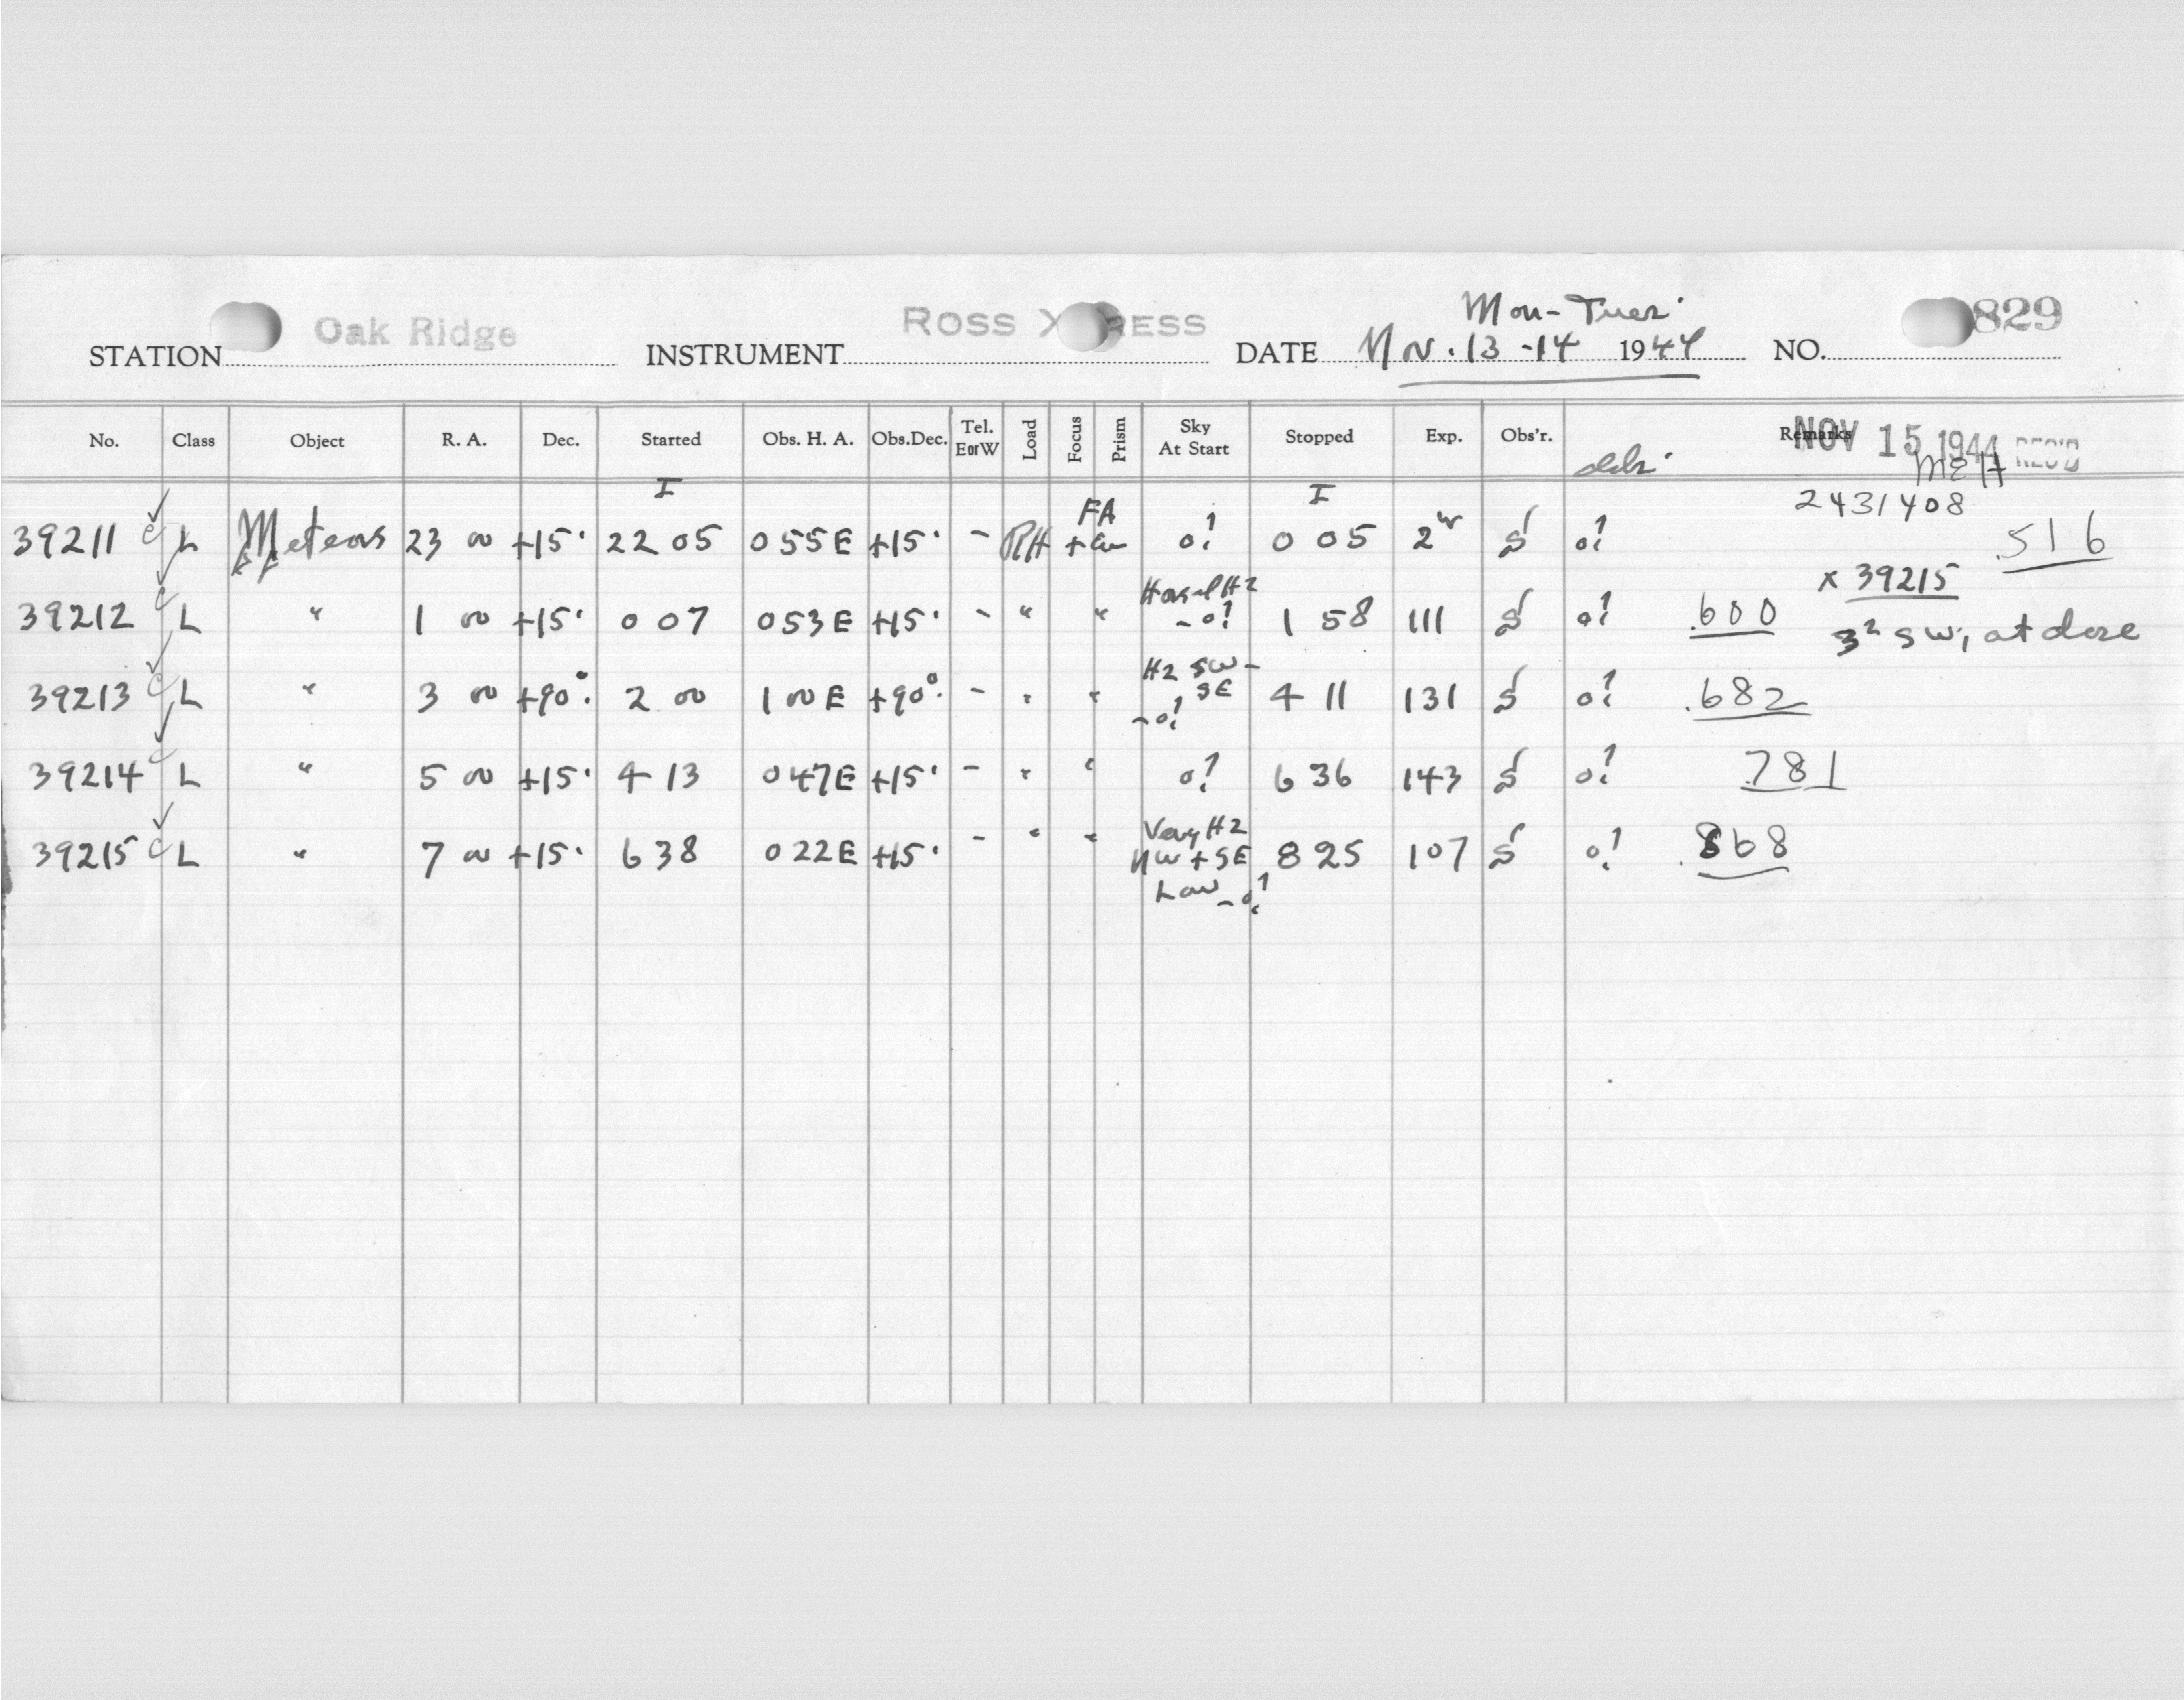 Mon-Tues.
STATION Oak Ridge INSTRUMENT ROSS X RESS DATE Nov. 13-14 1944 NO. 829
No. Class Object R. A. Dec. Started Obs. H. A. Obs.Dec. Tel. EorW Load Focus Prism Sky At Start Stopped Exp. Obs'r. Remarks
NOV 15 1944 REC'D
MEH
I I 2431408
39211 c L Meteors 23 00 +15° 22 05 0 55E +15° - FA o! 0 05 2 S o! .516
39212 c L " 1 00 +15° 0 07 0 53E +15° - " " H2 - o! 1 58 111 S o! .600
x 39215
3² SW, at close
39213 c L " 3 00 +90° 2 00 1 00 E +90° - " " H2 SW - SE - o! 4 11 131 S o! .682
39214 c L " 5 00 +15° 4 13 0 47E +15° - " " o! 6 36 143 S o! .781
39215 c L " 7 00 +15° 6 38 0 22E +15° - " " Very H2 NW + SE Low - o! 8 25 107 S o! .868